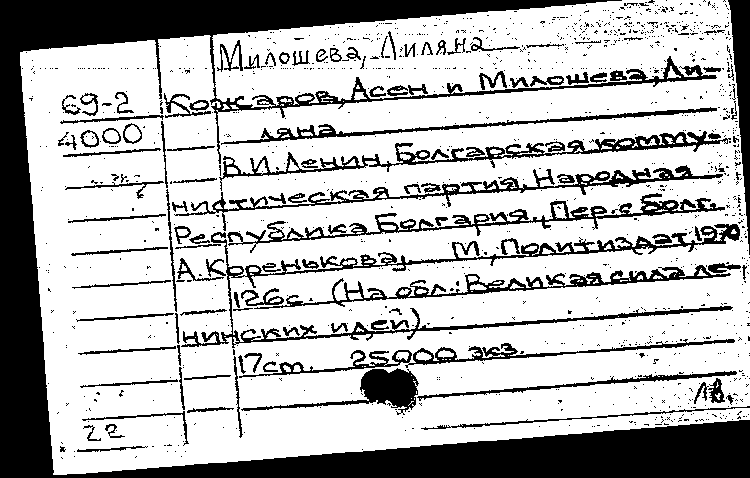 Милошева, Лиляна
69-2 Кожаров, Асен и Милошева, Ли-
4000 ляна.
В.И.Ленин, Болгарская комму-
нистическая партия, Народная
Республика Болгария. Пер. с болг.
А. Коренькова, М., Политиздат, 1970
126с. (На обл.: Великая сила ле-
нинских идей).
17cm. 25000 экз.
22